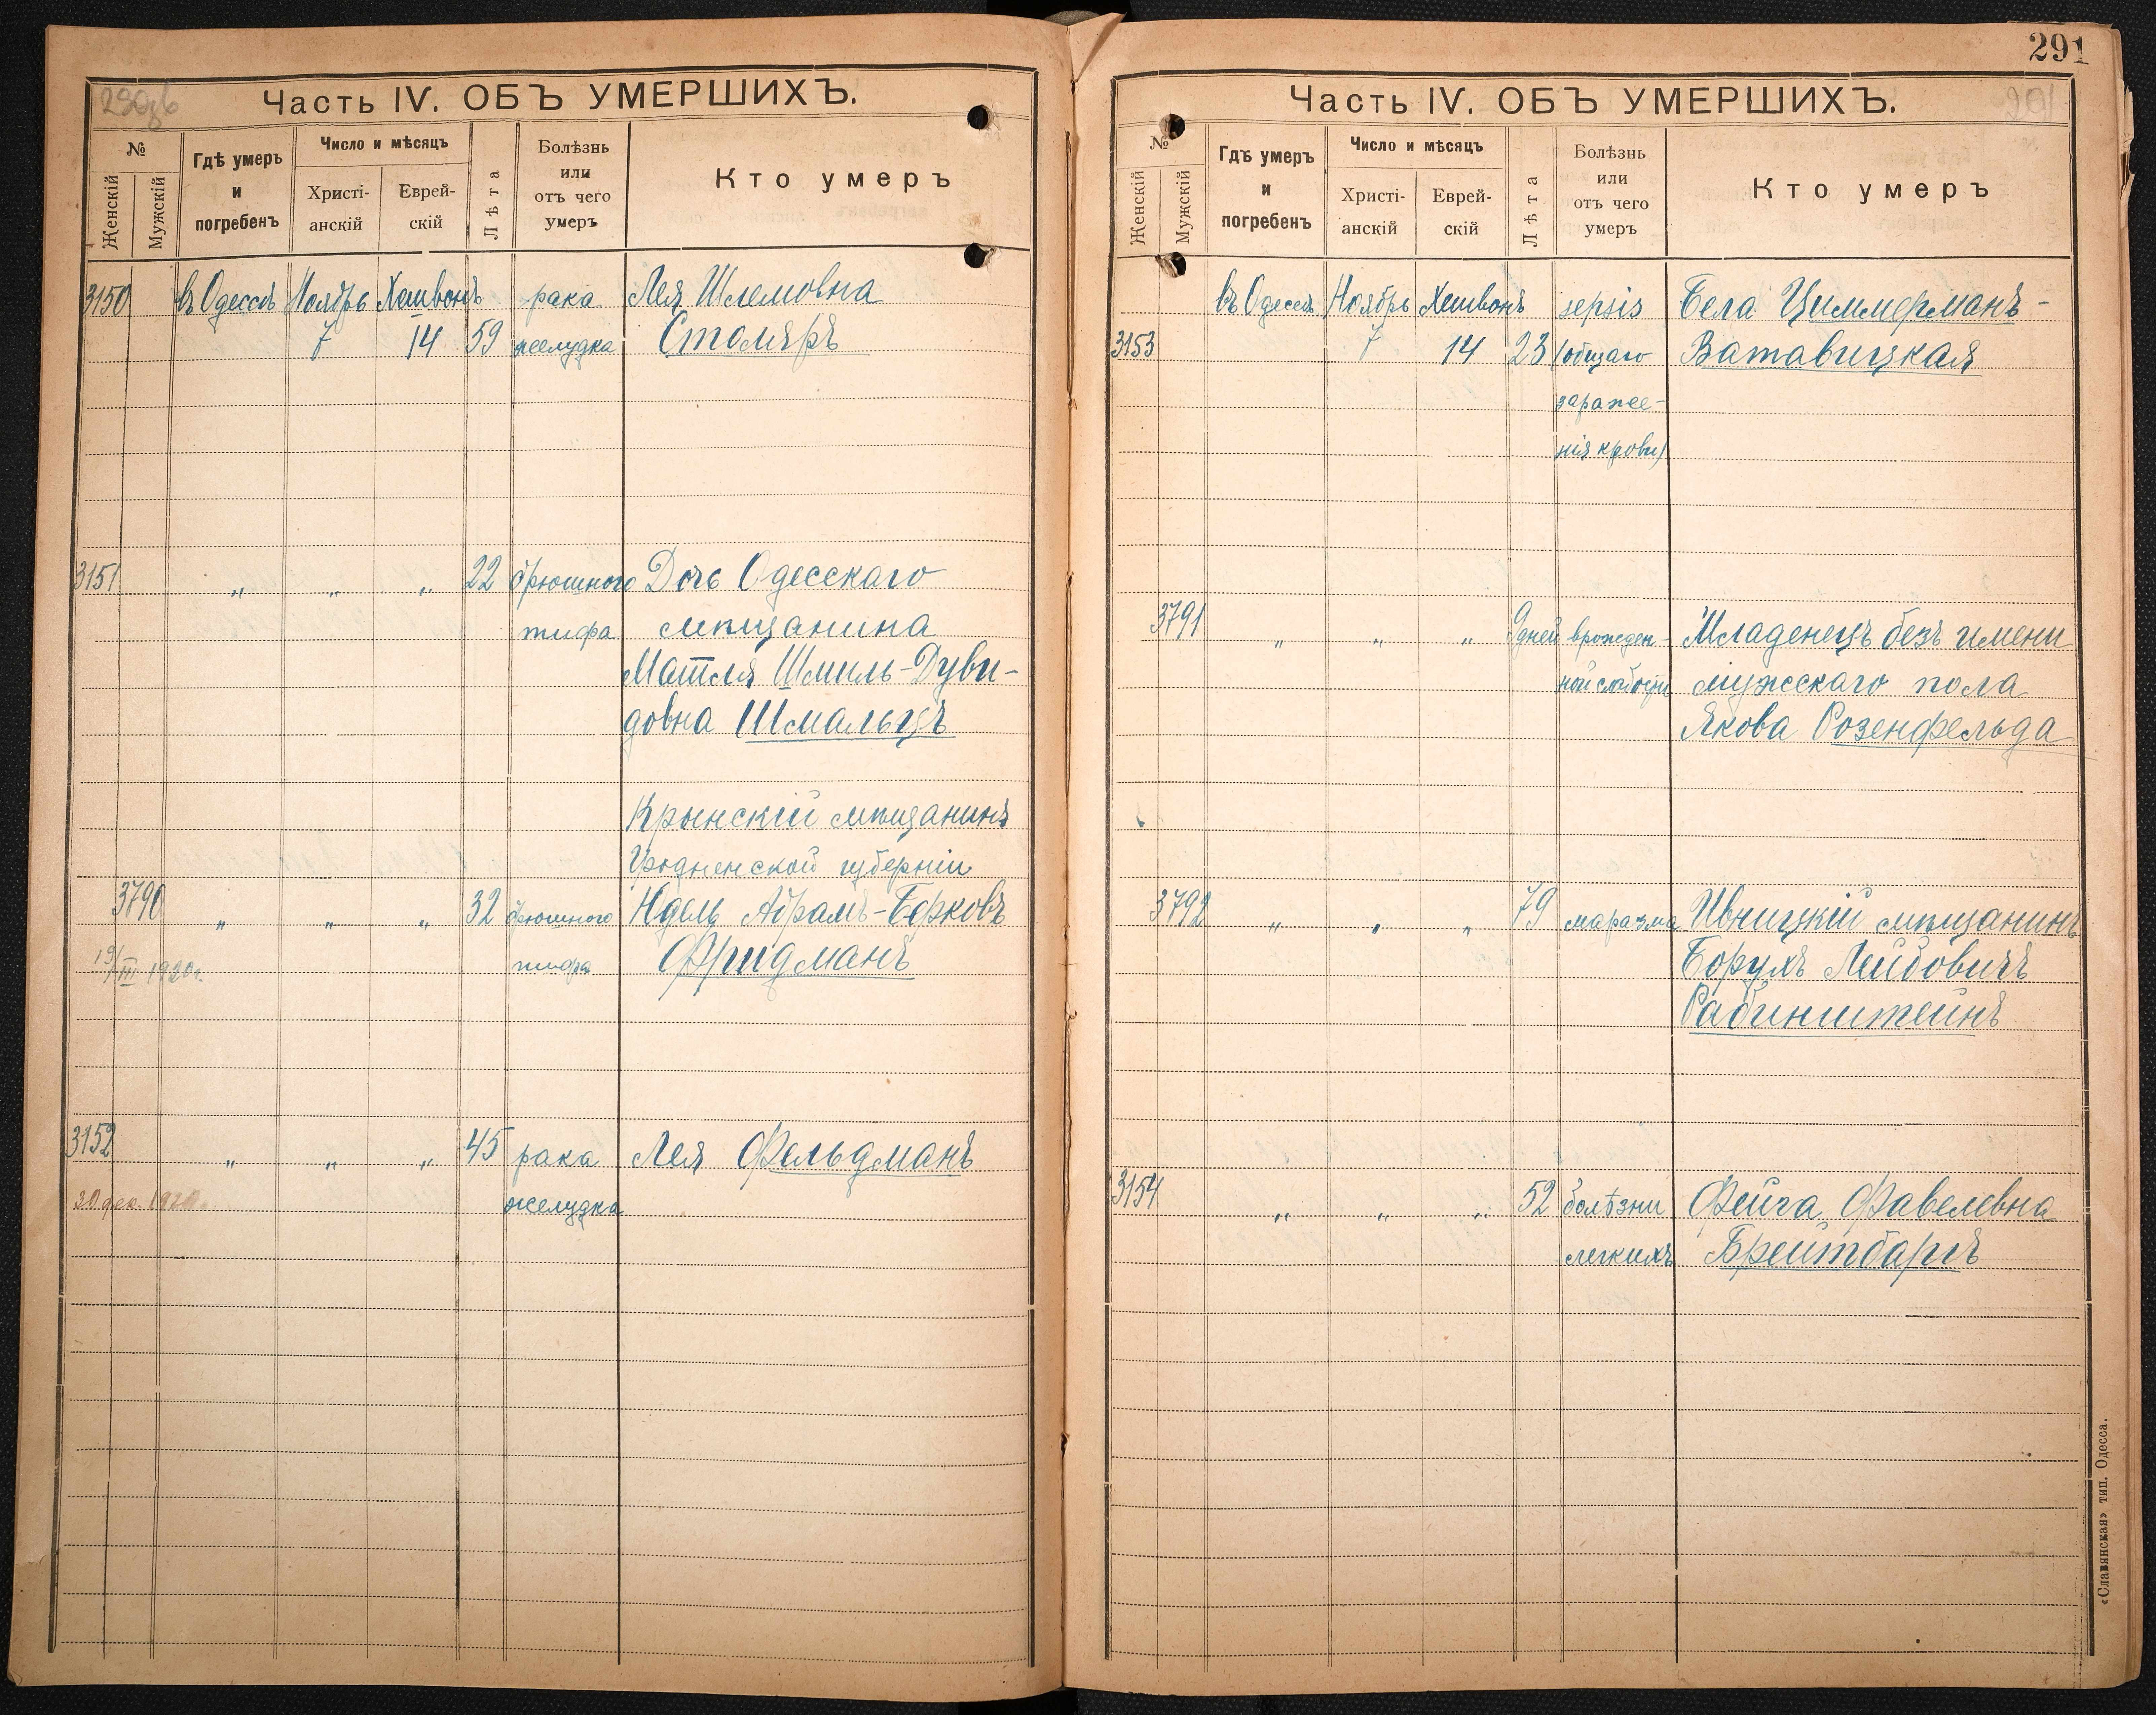 290об
Часть IV. ОБЪ УМЕРШИХЪ.
№
Женскій
Мужскій
Гдѣ умеръ
и
погребенъ
Число и мѣсяцъ
Христі-
анскій
Еврей-
скій
Лѣта
Болѣзнь
или
отъ чего
умеръ
Кто умеръ
3150 въ Одессѣ Ноябрь Хешвонъ рака Лея Шлемовна
7 14 59 желудка Столяръ
3151 " " " 22 брюшного Дочь Одесскаго
тифа мѣщанина
Матля Шмиль-Дуви-
довна Шмальцъ
Крынскій мѣщанинъ
Гродненской губерніи
3790 " " " 32 брюшного Идель Абрамъ-Берковъ
19/III 1920г. тифа Фридманъ
3152 " " " 45 рака Лея Фельдманъ
30 дек. 1920г. желудка
291
Часть IV. ОБЪ УМЕРШИХЪ.
291
№
Женскій
Мужскій
Гдѣ умеръ
и
погребенъ
Число и мѣсяцъ
Христі-
анскій
Еврей-
скій
Лѣта
Болѣзнь
или
отъ чего
умеръ
Кто умеръ
въ Одессѣ Ноябрь Хешвонъ sepsis Бела Циммерманъ-
3153 7 14 23 (общаго Ватавицкая
зараже-
нія крови)
3791 " " " 9 дней врожден- Младенецъ безъ имени
ной слабости мужескаго пола
Якова Розенфельда
3792 " " " 79 маразма Ивницкій мѣщанинъ
Борухъ Лейбовичъ
Рабинштейнъ
3154 " " " 52 болѣзни Фейга Фавелевна
легкихъ Брейтбаргъ
«Славянская» тип. Одесса.